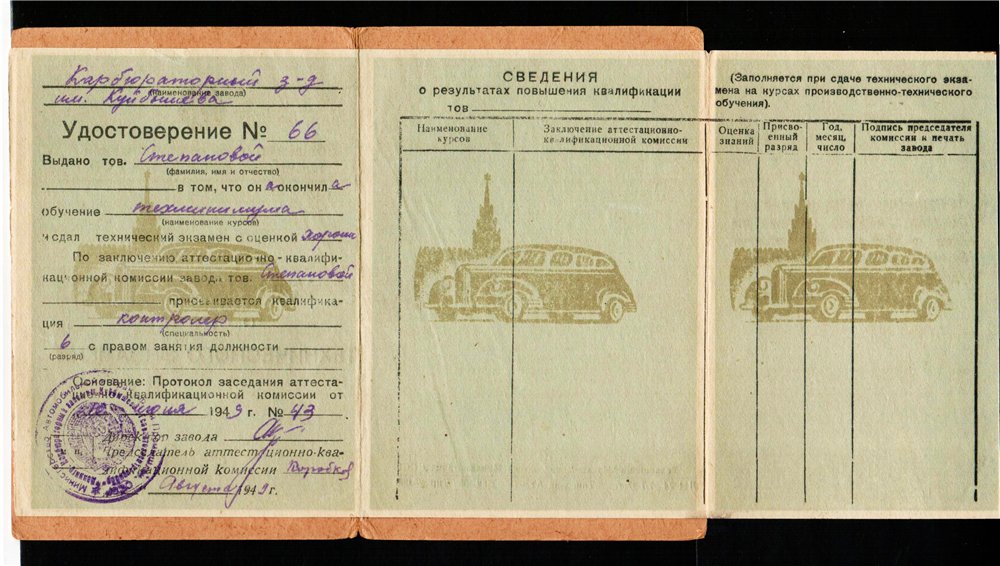 Карбюраторный з-д
(наименование завода)
им. Куйбышева
Удостоверение № 66
Выдано тов. Степановой
(фамилия, имя и отчество)
в том, что он а окончил а
обучение техминимума
(наименование курсов)
и сдал технический экзамен с оценкой хорошо
По заключению аттестационно-квалифи-
кационной комиссии завода тов. Степановой
присваивается квалифика-
ция контролер
(специальность)
6 с правом занятия должности
(разряд)
Основание: Протокол заседания аттеста-
ционно-квалификационной комиссии от
июля 1949 г. № 43
Директор завода
Председатель аттестационно-ква-
лификационной комиссии Коробков
Августа 1949 г.
СВЕДЕНИЯ
о результатах повышения квалификации
тов
Наименование
курсов
Заключение аттестационно-
квалификационной комиссии
(Заполняется при сдаче технического экза-
мена на курсах производственно-технического
обучения).
Оценка
знаний
Присво-
енный
разряд
Год,
месяц,
число
Подпись председателя
комиссии и печать
завода